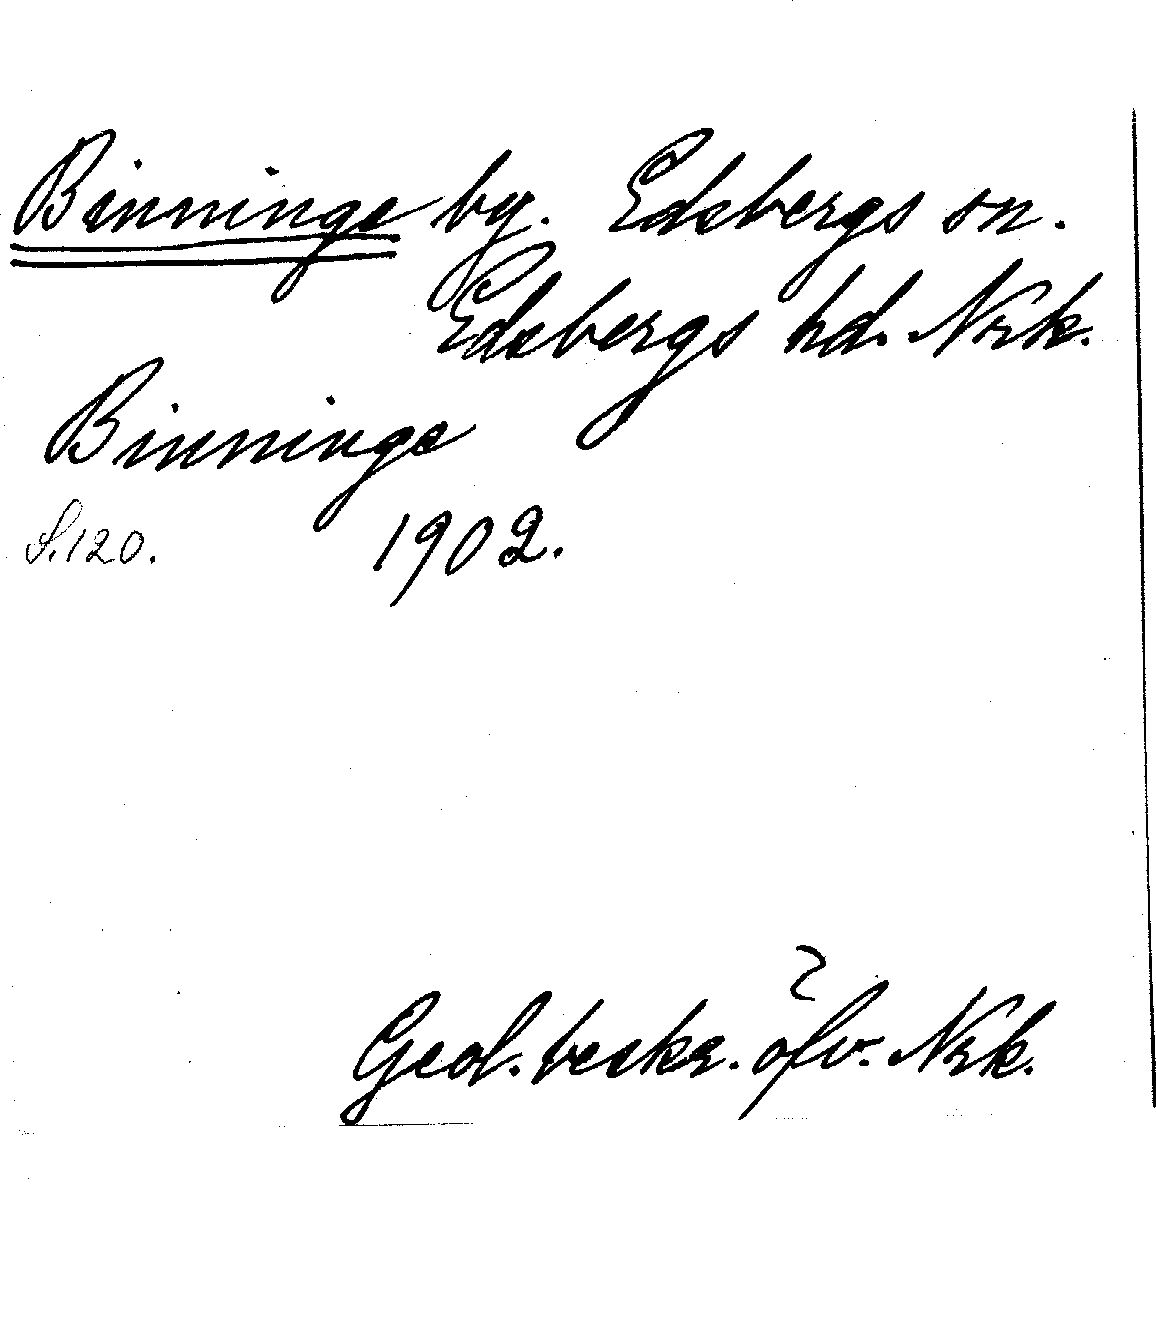 Binninge by. Edsbergs sn.
Edsbergs hd. Nrk.
Binninge
S.120. 1902.
Geol. beskr. öfv. Nrk.